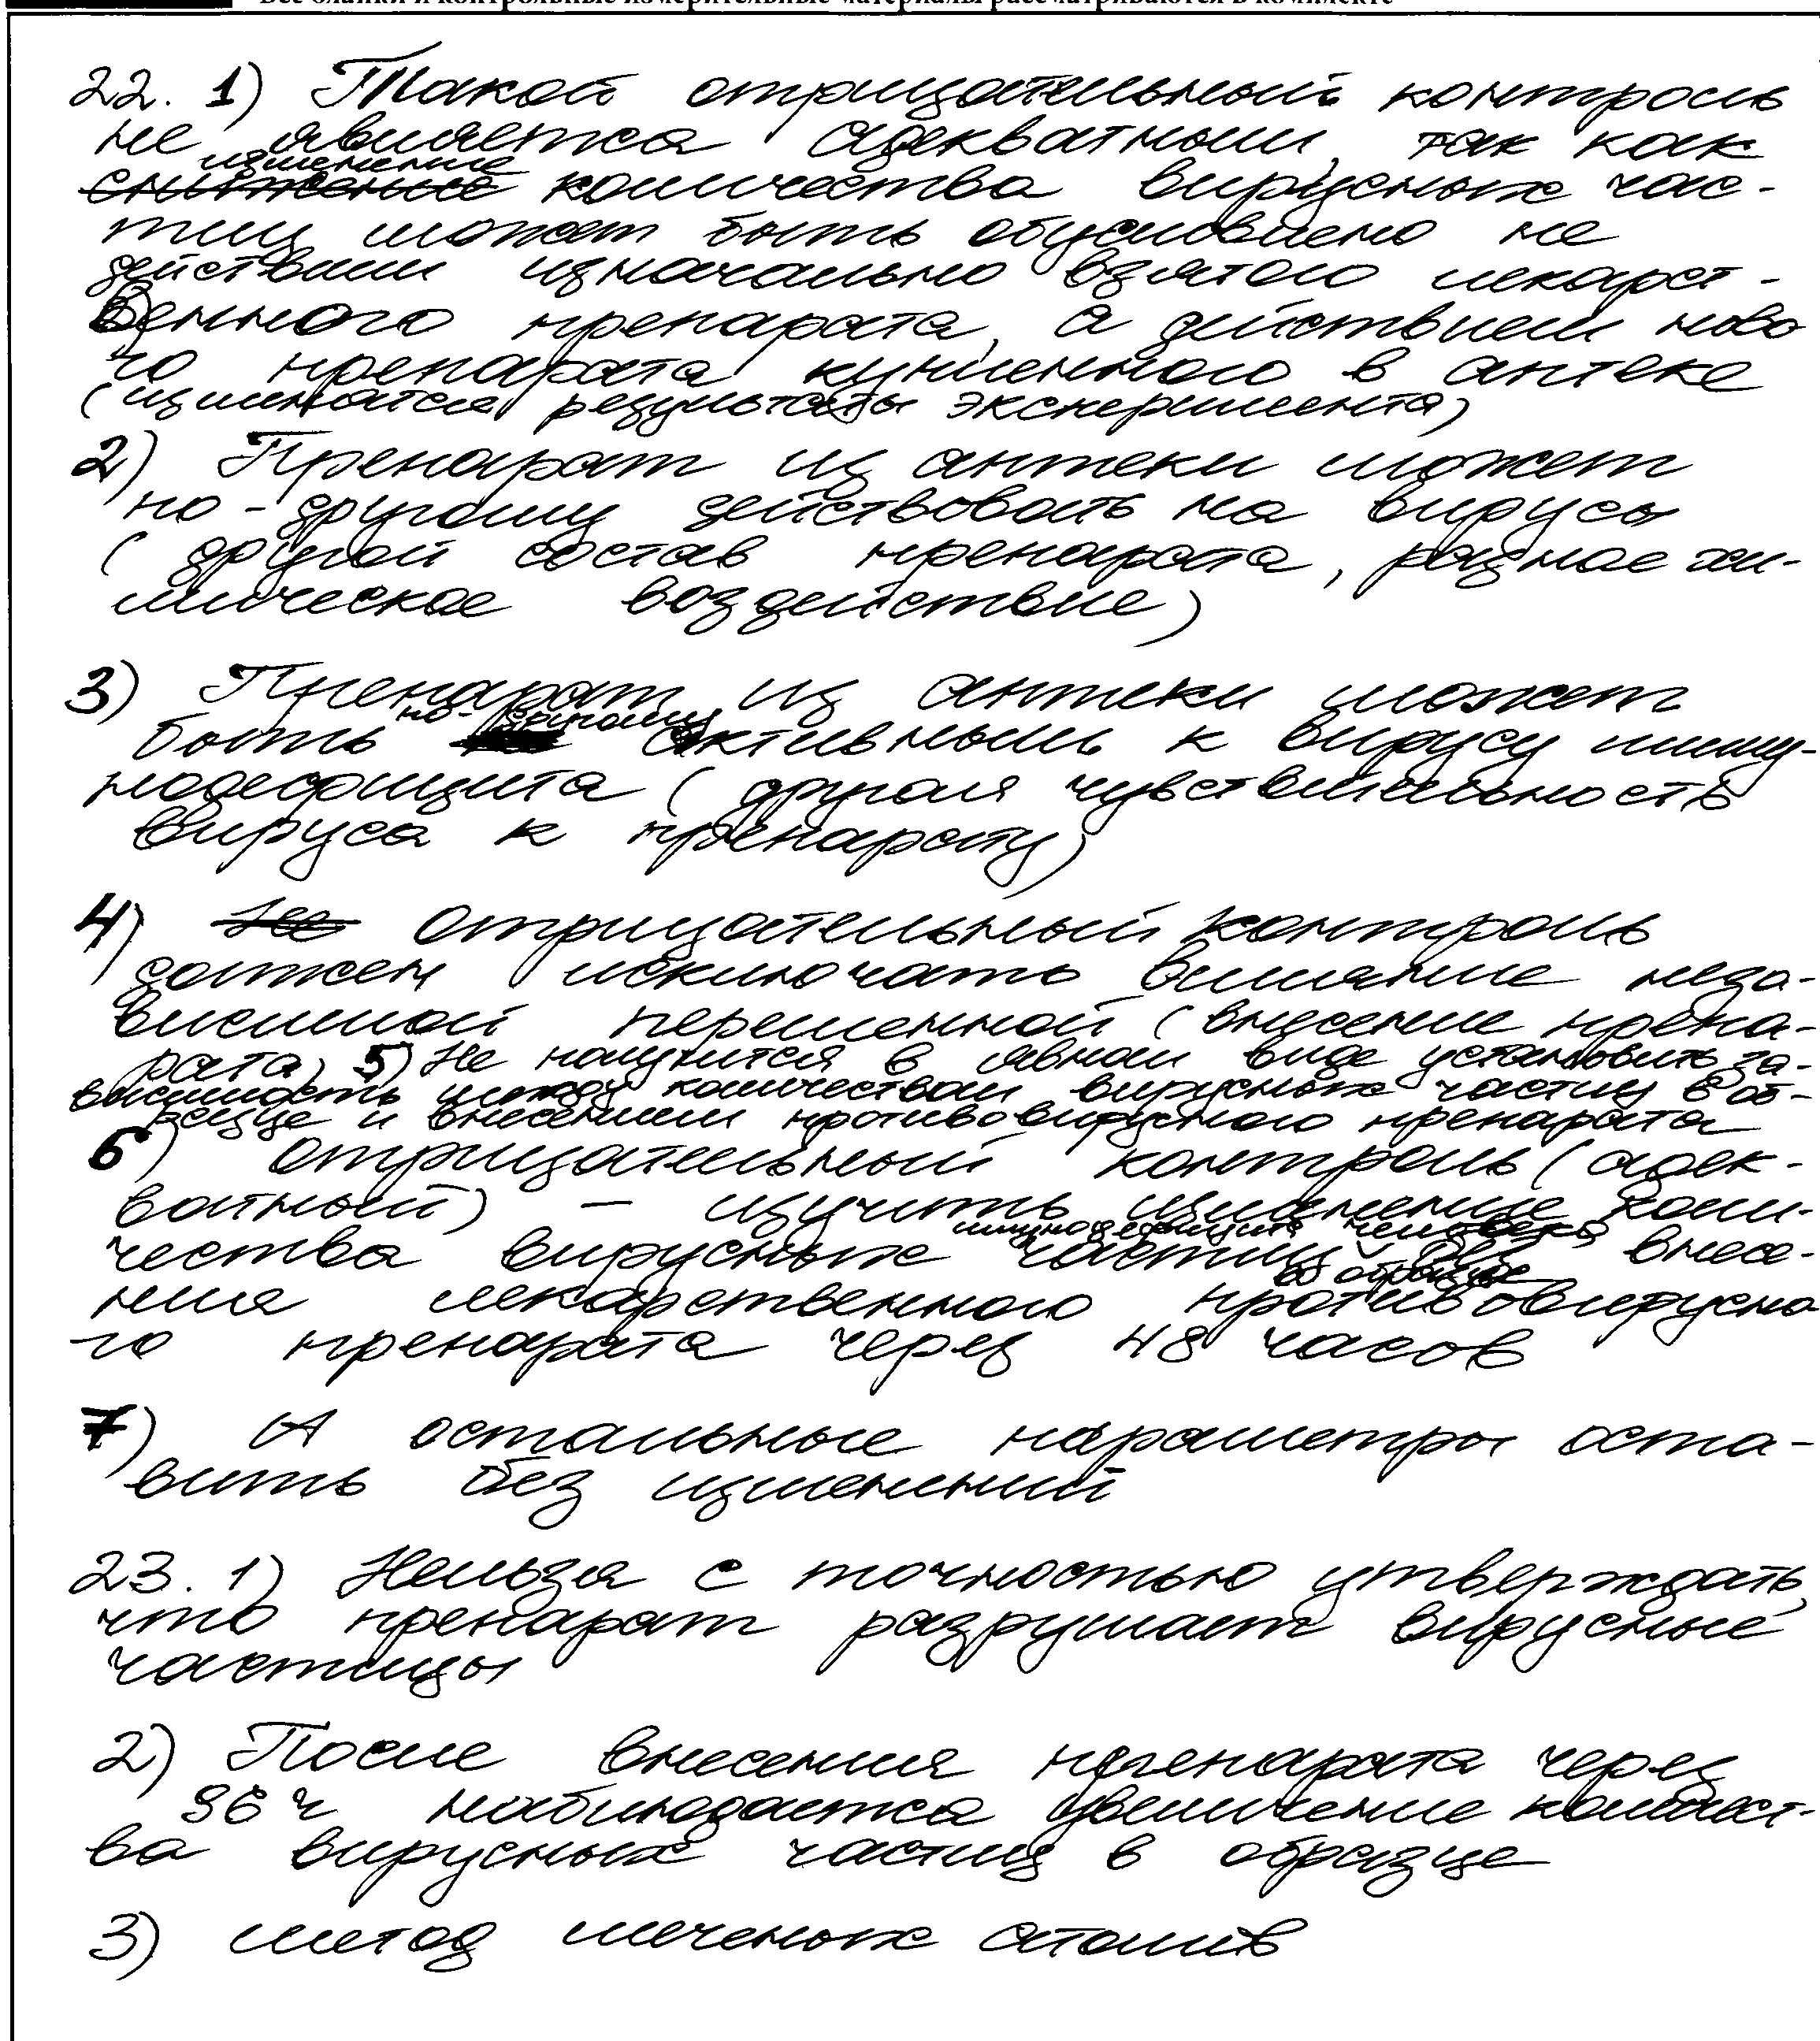 Все бланки и контрольные измерительные материалы рассматриваются в комплекте
22. 1) Такой отрицательный контроль
не является адекватным, так как
изменение
снижение количества вирусных час-
тиц может быть обусловлено не
действием изначально взятого лекарст-
венного препарата, а действием ново
го препарата купленного в аптеке
(изменятся результаты эксперимента)
2) Препарат из аптеки может
по-другому действовать на вирусы
(другой состав препарата, разное хи-
мическое воздействие)
3) Препарат из аптеки может
по-другому
быть активным к вирусу имму-
нодефицита (другая чувствительность
вируса к препарату)
4) Не Отрицательный контроль
должен исключать влияние неза-
висимой переменной (внесение препа-
рата) 5) Не получится в явном виде установить за-
висимость между количеством вирусных частиц в об-
разце и внесением противовирусного препарата
6) Отрицательный контроль (адек-
ватный) – изучить изменение коли-
иммунодефицита человека
чества вирусных частиц без внесе-
в образце
ния лекарственного противовирусно
го препарата через 48 часов
7) А остальные параметры оста-
вить без изменений
23. 1) Нельзя с точностью утверждать,
что препарат разрушает вирусные
частицы
2) После внесения препарата через
96 ч наблюдается увеличение количест-
ва вирусных частиц в образце
3) метод меченых атомов